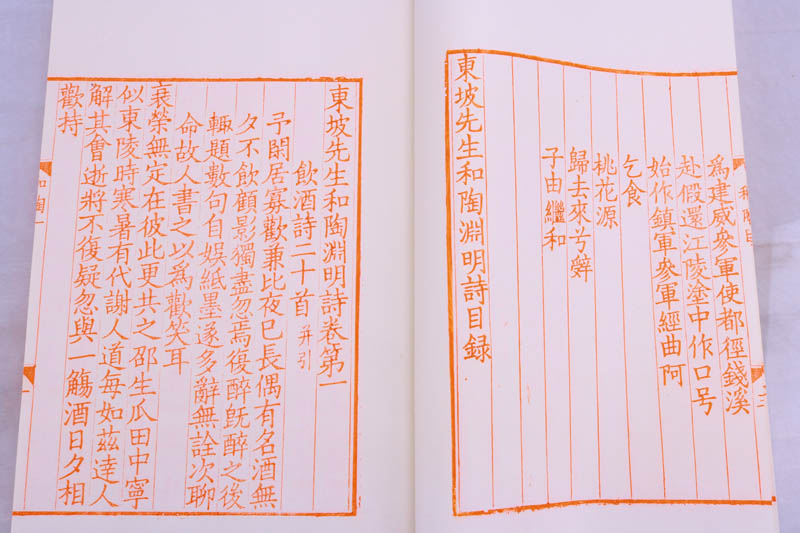 爲建威參軍使都徑錢溪
赴假還江陵塗中作口号
始作鎮軍參軍經曲阿
乞食
桃花源
歸去來兮辭
子由繼和
東坡先生和陶淵明詩目録
東坡先生和陶淵明詩卷第一
飲酒詩二十首 并引
予閑居寡歡兼比夜已長偶有名酒無
夕不飲顧影獨盡忽焉復醉旣醉之後
輙題數句自娱紙墨遂多辭無詮次聊
命故人書之以爲歡笑耳
衰榮無定在彼此更共之邵生瓜田中寧
似東陵時寒暑有代謝人道每如茲達人
解其會逝將不復疑忽與一觴酒日夕相
歡持
和陶一